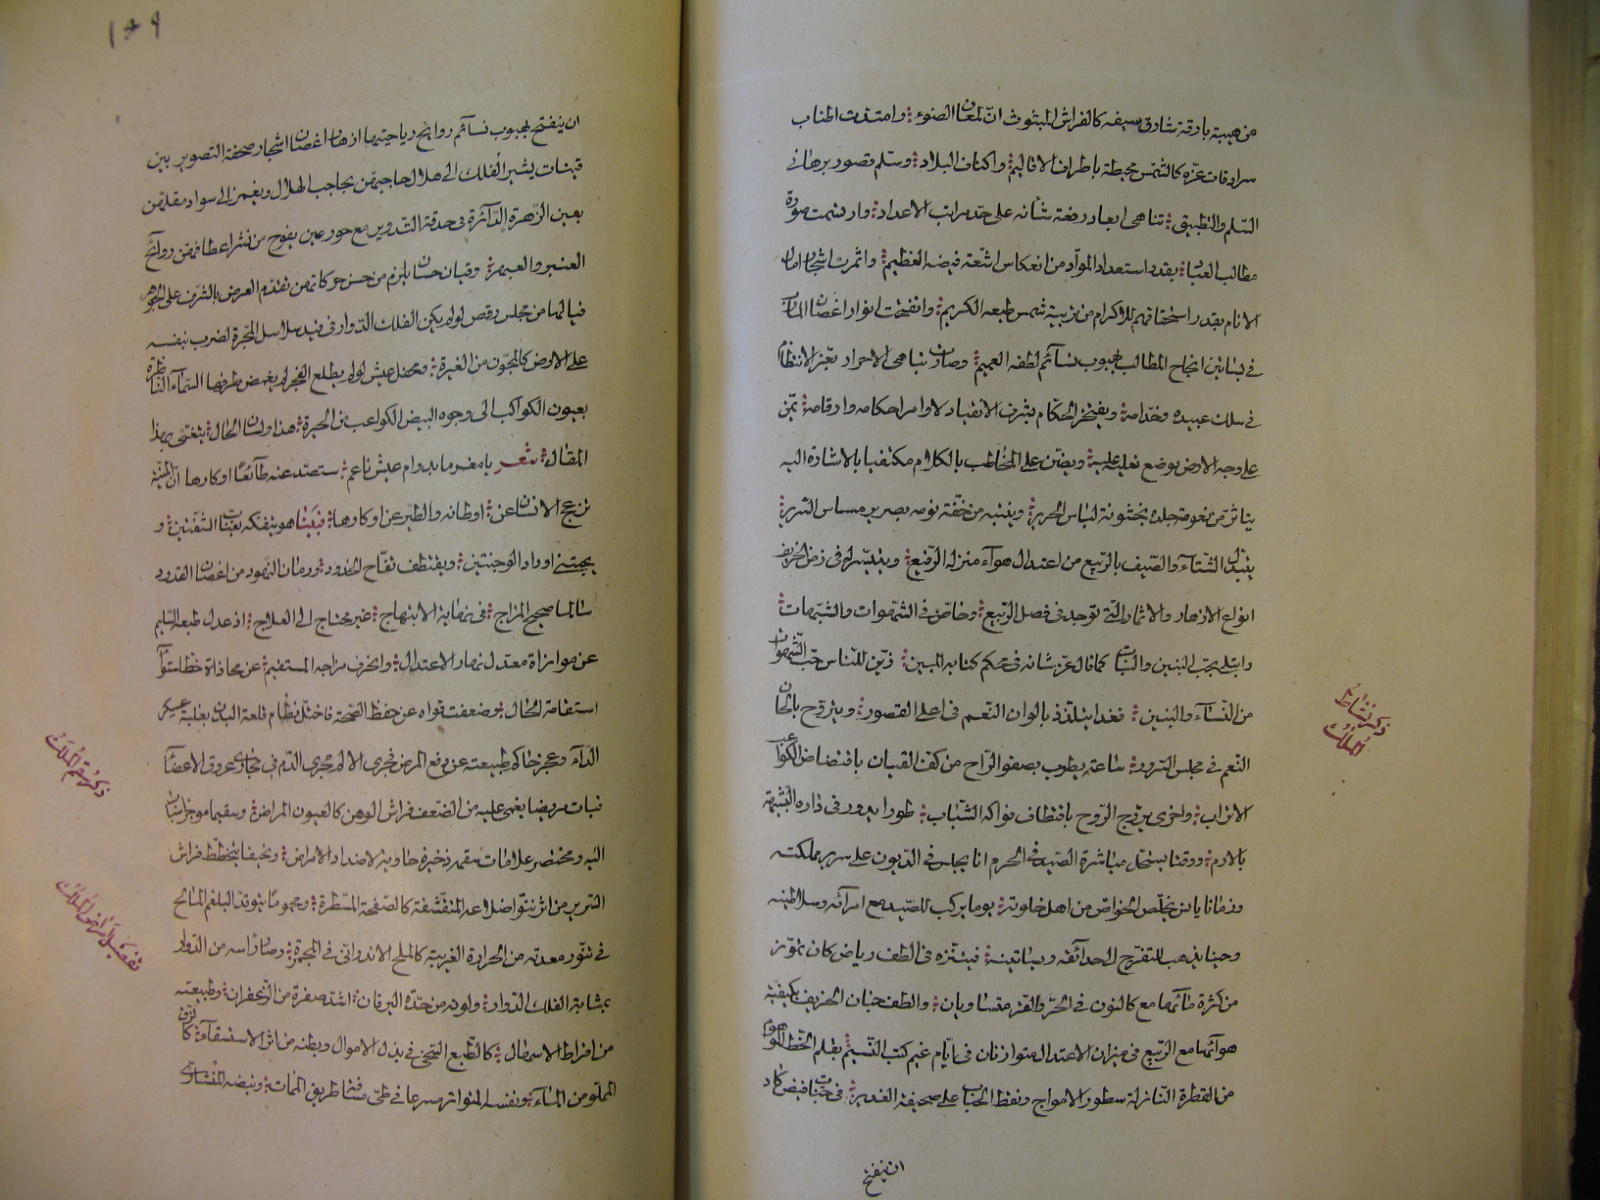 من هيبة بارقة شارق سيفه كالفراش المبثوث ان لمعان الضوء وامتدت اطناب
سرادقات عزه كالشمس محيطة باطراف الاقاليم واكناف البلاد وسلم قصور برهاني
السلم والتطبيق تناهى ابعاد رفعة شانه على حد مراتب الاعداد وارتسمت صورة
مطالب العباد بقدر استعداد المواد من انعكاس اشعة فيضه العظيم واثمرت اشجار امان
الانام بقدر استحقاقهم للاكرام من تربية شمس طبعه الكريم وانفتحت انوار اغصان
في بساتين انجاح المطالب بهبوب نسائم لطفه العميم وصارت تباهى الاحرار بعز الانتظام
في سلك عبيده وخدامه ويفتخر الحكام بشرف الانقياد لاوامر احكامه وارقامه يمن
على وجه الارض بوضع نعليه عليه ويضن على المخاطب بالكلام مكتفيا بالاشارة اليه
يتاثر من نعومة جلده بخشونة لباس الحرير وينتبه من خفة نومه بصرير مساس السرير
يتبدل الشتاء والصيف بالربيع من اعتدال هواء منزله الرفيع ويتيسر له في زمن الخريف
انواع الازهار والاثمار التي توجد في فصل الربيع وخاض في الشهوات والشبهات
وابتلي بحب البنين والبنات كما قال عز شانه في محكم كتابه المبين زين للناس حب الشهوات
من النساء والبنين فغدا يتلذذ بالوان النعم في اعلى القصور ويتروح بالحان
النغم في مجلس السرور ساعة يطرب بصفو الراح من كف القيان بافتضاض الكواعب
الاتراب واخرى يروح الروح باقتطاف فواكه الشباب طورا يدور في داره الشبيهة
بالارم ووقتا يستحل مباشرة الصيد في الحرم انا يجلس في الديون على سرير مملكته
وزمانا يانس بخلص الخواص من اهل خلوته يوما يركب للصيد مع امرائه وسلاطينه
وحينا يذهب للتفرج الى حدائقه وبساتينه فيتنزه في الطف رياض كان تموز
من كثرة مائها مع كانون في الحر والقر متساويان والطف جنان الخريف بكيفية
هوائها مع الربيع في ميزان الاعتدال متوازنان في ايام غيم كتب النسيم بقلم الخط
من القطرة النازلة سطور الامواج ونقط الحباب على صحيفة الغدير في جنات فيض كاد
ان ينفتح
ذكر نشاط
الملك
١٠٩
ان ينفتح بهبوب نسائم روايح رياحينها ازهار اغصان اشجار صفحة التصوير بين
قينات يشير الفلك الى هلال حاجبهن بحاجب الهلال ويغمز الى سواد مقلتهن
بعين الزهرة الدائرة في حدقة التدوير مع حور عين يفوح من نشر اعطافهن روائح
العنبر والعبير وقيان حسان يلزم من حسن حركاتهن تقدم العرض بالشرف على الجوهر
فيا لها من مجلس رقص لو لم يكن الفلك الدوار في قيد سلاسل المجرة لضرب بنفسه
على الارض كالمجنون من الغيرة ومحفل عيش لو لم يطلع الفجر لم يغمض طرفها السماء الناظرة
بعيون الكواكب الى وجوه البيض الكواعب من الحيرة هذا ولسان الحال يتغنى بهذا
المقال شعر يا مغرما بدوام عيش ناعم ستصد عنه طائعا او كارها ان المنية
تزعج الانسان عن اوطانه والطير عن اوكارها فبينا هو يتفكه بعناب الشفتين و
يجتني اوراد الوجنتين ويقتطف تفاح الخدود ورمان النهود من اغصان القدود
سالما صحيح المزاج في نهاية الابتهاج غير محتاج الى العلاج اذ عدل طبعه السليم
عن موازاة معتدل نهار الاعتدال وانحرف مزاجه المستقيم عن محاذاة خط استواء
استقامة الحال وضعفت قواه عن حفظ الصحة فاختل نظام قلعة البدن بغلبة عسكر
الداء وعجز حاكم طبيعته عن دفع المرض فجرى الالم مجرى الدم في مجاري عروق الاعضاء
فبات مريضا يغمى عليه من الضعف فراش الوهن كالعيون المراض وسقيما موجز اسباب
اليه ومختصر علامات سقمه ذخيرة حاوية لاضداد الامراض ونحيفا يتخطط فراش
السرير من اثر نتو اضلاعه المتقشفة كالصفحة المسطرة ومحموما يتوقد البلغم المالح
في تنور معدته من الحرارة الغريبة كالملح الاندراني في المجمرة وصار راسه من الدوار
بمشابة الفلك الدوار ولونه من حدة اليرقان اشد صفرة من الزعفران وطبيعته
من افراط الاسهال كالطبع السخي في بذل الاموال وبطنه من اثر الاستسقاء كالزق
المملو من الماء ونفسه المتواتر مسرعا في طي مسافة طريق الممات ونبضه المنشاري
ذكر سقم الملك
تفصيل امراض الملك